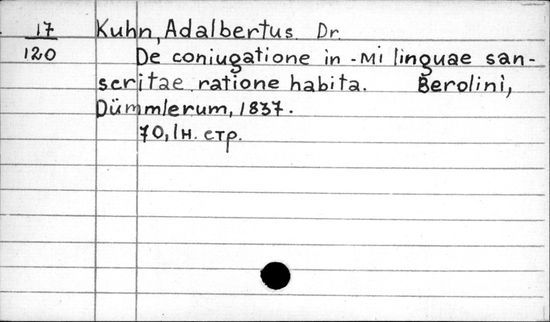 17 Kuhn, Adalbertus Dr.
120 De coniugatione in -Mi linguae san-
scritae ratione habita. Berolini,
Dümmlerum, 1837.
70, 1 н. стр.